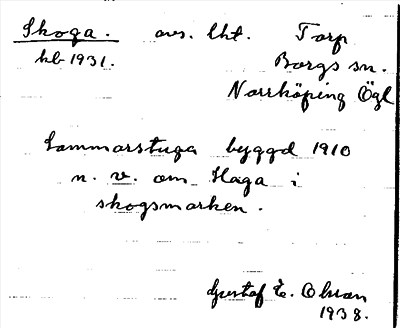 Skoga. avs. lht. Torp
hb 1931. Borgs sn.
Norrköping Ögl
Sommarstuga byggd 1910
n. v. om Haga i
skogsmarken.
Gustaf E. Olsson
1938.